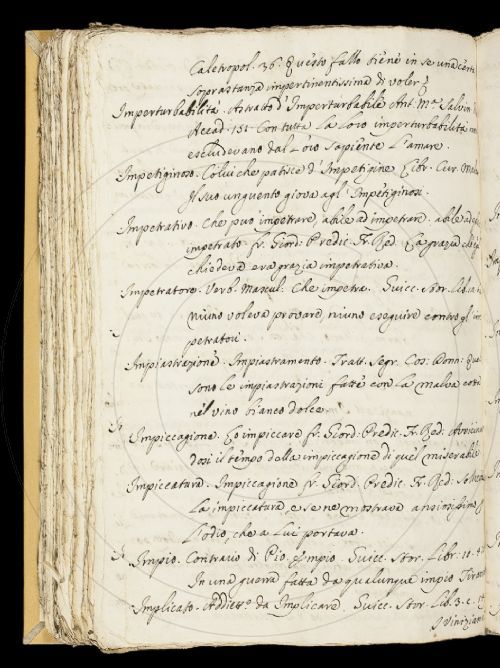 Caletropol. 36. Questo fallo tiene in se una certa
soprastanza impertinentissima di voler
Imperturbabilità. Astratto d'Imperturbabile Ant. M.ª Salvin
Accad. 151. Con tutta la loro imperturbabilità n
escludevano dal loro sapiente l'amare.
Impetiginoso. Colui che patisce d'Impetigine Libr. Cur. Malat
Il suo unguento giova agl'Impetiginosi.
Impetrativo. Che può impetrare, abile ad impetrare. abile ad
impetrato. fr. Giord: Predic. Fr. Red. La grazia che
chiedeva era grazia impetrativa.
Impetratore. Verb. Mascul: che impetra. Guicc. Stor. Lib.
niuno voleva provare, niuno eseguire contro gl'im
petratori.
Impiastrazione. Impiastramento. Tratt. Segr. Cos. Donn:
sono le impiastrazioni fatte con la malva cotta
nel vino bianco dolce.
Impiccagione. Lo impiccare fr. Giord: Predic. Fr. Red: Avvicinan
dosi il tempo della impiccagione di quel miserabile
Impiccatura. Impiccagione fr. Giord. Predic. Fr. Red:
La impiccatura, e se ne mostrava ansiosissimo
l'odio, che a lui portava.
Impio. Contrario di Pio. Empio. Guicc. Stor. Libr: 11.
In una guerra fatta da qualunque impio Tiran
Implicato. Addiett.º da Implicare. Guicc. Stor. Lib. 3. c.
i Viniziani